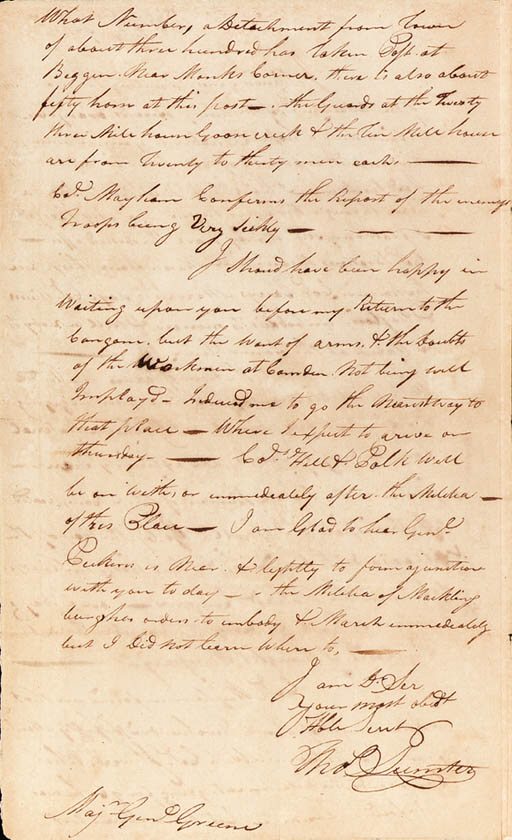 What Number, a Detachment from Town
of about three hundred has taken Post at
Biggin. Near Monks Corner. there is also about
fifty horse at this post —. the Guards at the Twenty
three Mile house Goose creek & the Ten Mile house
are from Twenty to thirty men each —
Col. Mayham Confirms the Report of the enemys
Troops being Very Sickly —
I Should have been happy in
Waiting upon you before my Return to the
Congaree. but the Want of arms. & the doubts
of the Workmen at Camden. Not being well
Imployd — Induced me to go the Nearest way to
that place — Where I expect to arive on
thursday — Cols. Hill & Polk Will
be on With, or immedeately after. the Militia —
of this Place — I am Glad to hear Genl.
Pickens is Near. & lightly to form a junction
with you to day — the Militia of Mackling
burgh is orders to imbody & March immedeately
but I Did not learn Where to, —
I am Dr. Ser
your most obedt
Hble Servt
Thos. Sumter
Majr. Genl. Greene